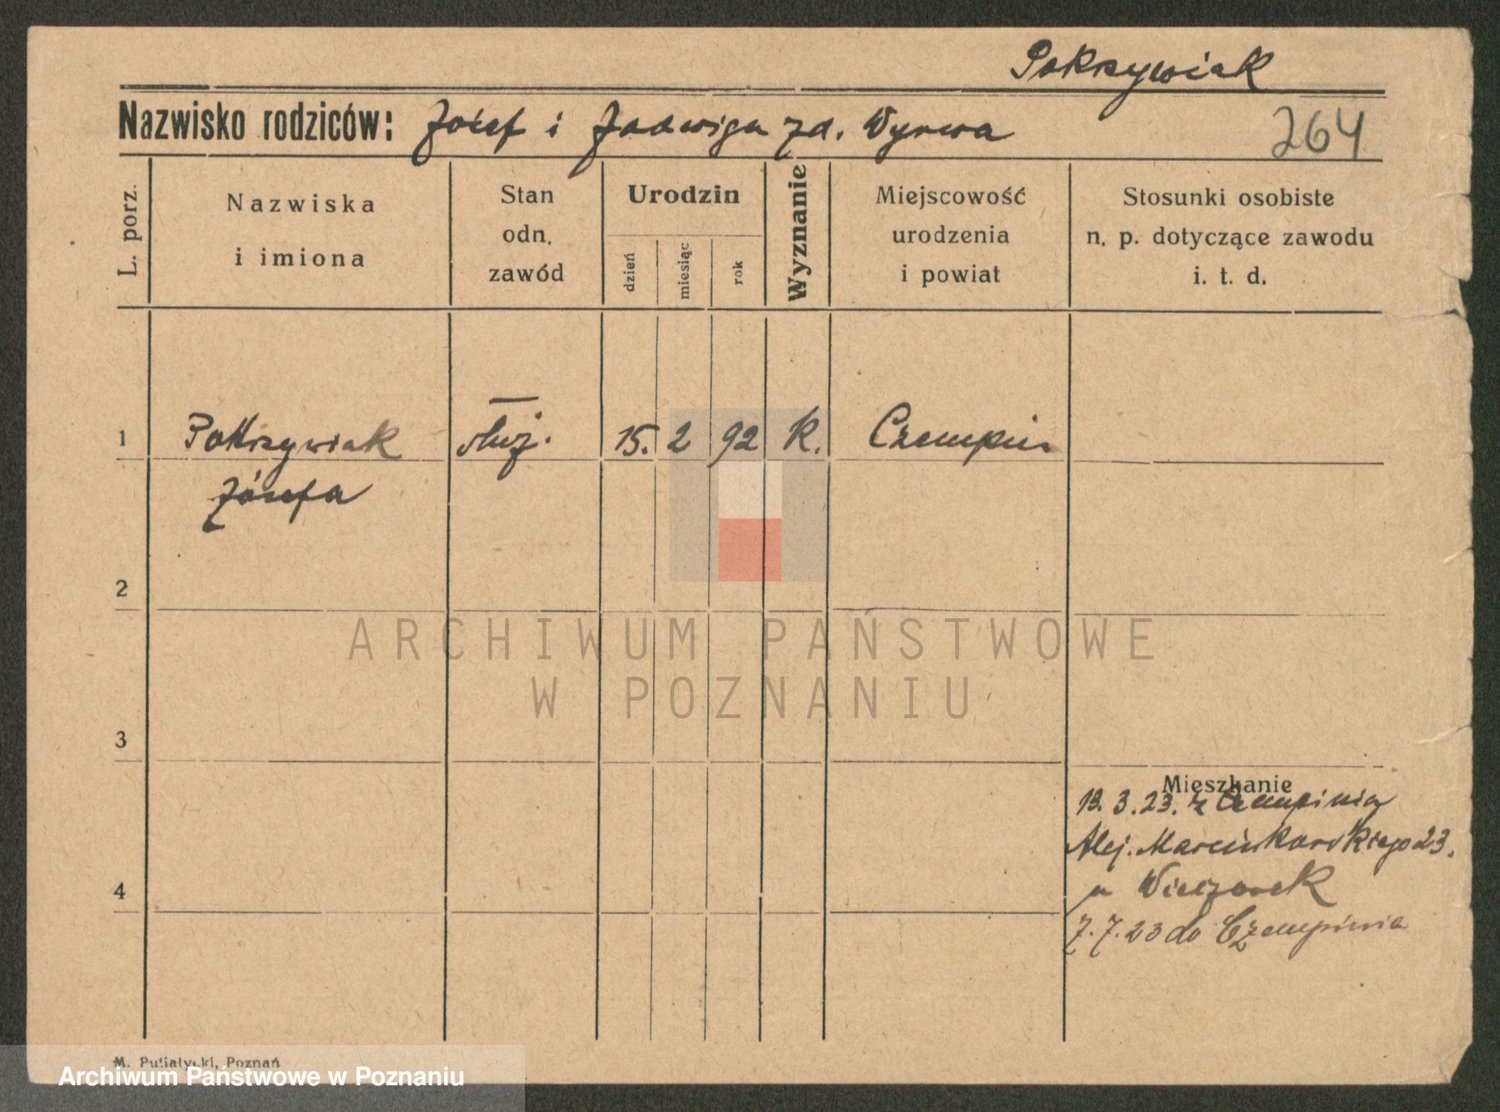 Pokrzywiak
Nazwisko rodziców: Józef i Jadwiga zd. Wyrwa
264
L. porz.
Nazwiska
i imiona
Stan
odn.
zawód
Urodzin
dzień
miesiąc
rok
Wyznanie
Miejscowość
urodzenia
i powiat
Stosunki osobiste
n. p. dotyczące zawodu
i. t. d.
1 Pokrzywiak służ. 15. 2 92 k. Czempin
Józefa
2
ARCHIWUM PAŃSTWOWE
W POZNANIU
3
Mieszkanie
19. 3. 23. z Czempinia
Alej. Marcinkowskiego 23.
u Wieczorek
4
7. 7. 23 do Czempinia
M. Putiatycki, Poznań
Archiwum Państwowe w Poznaniu